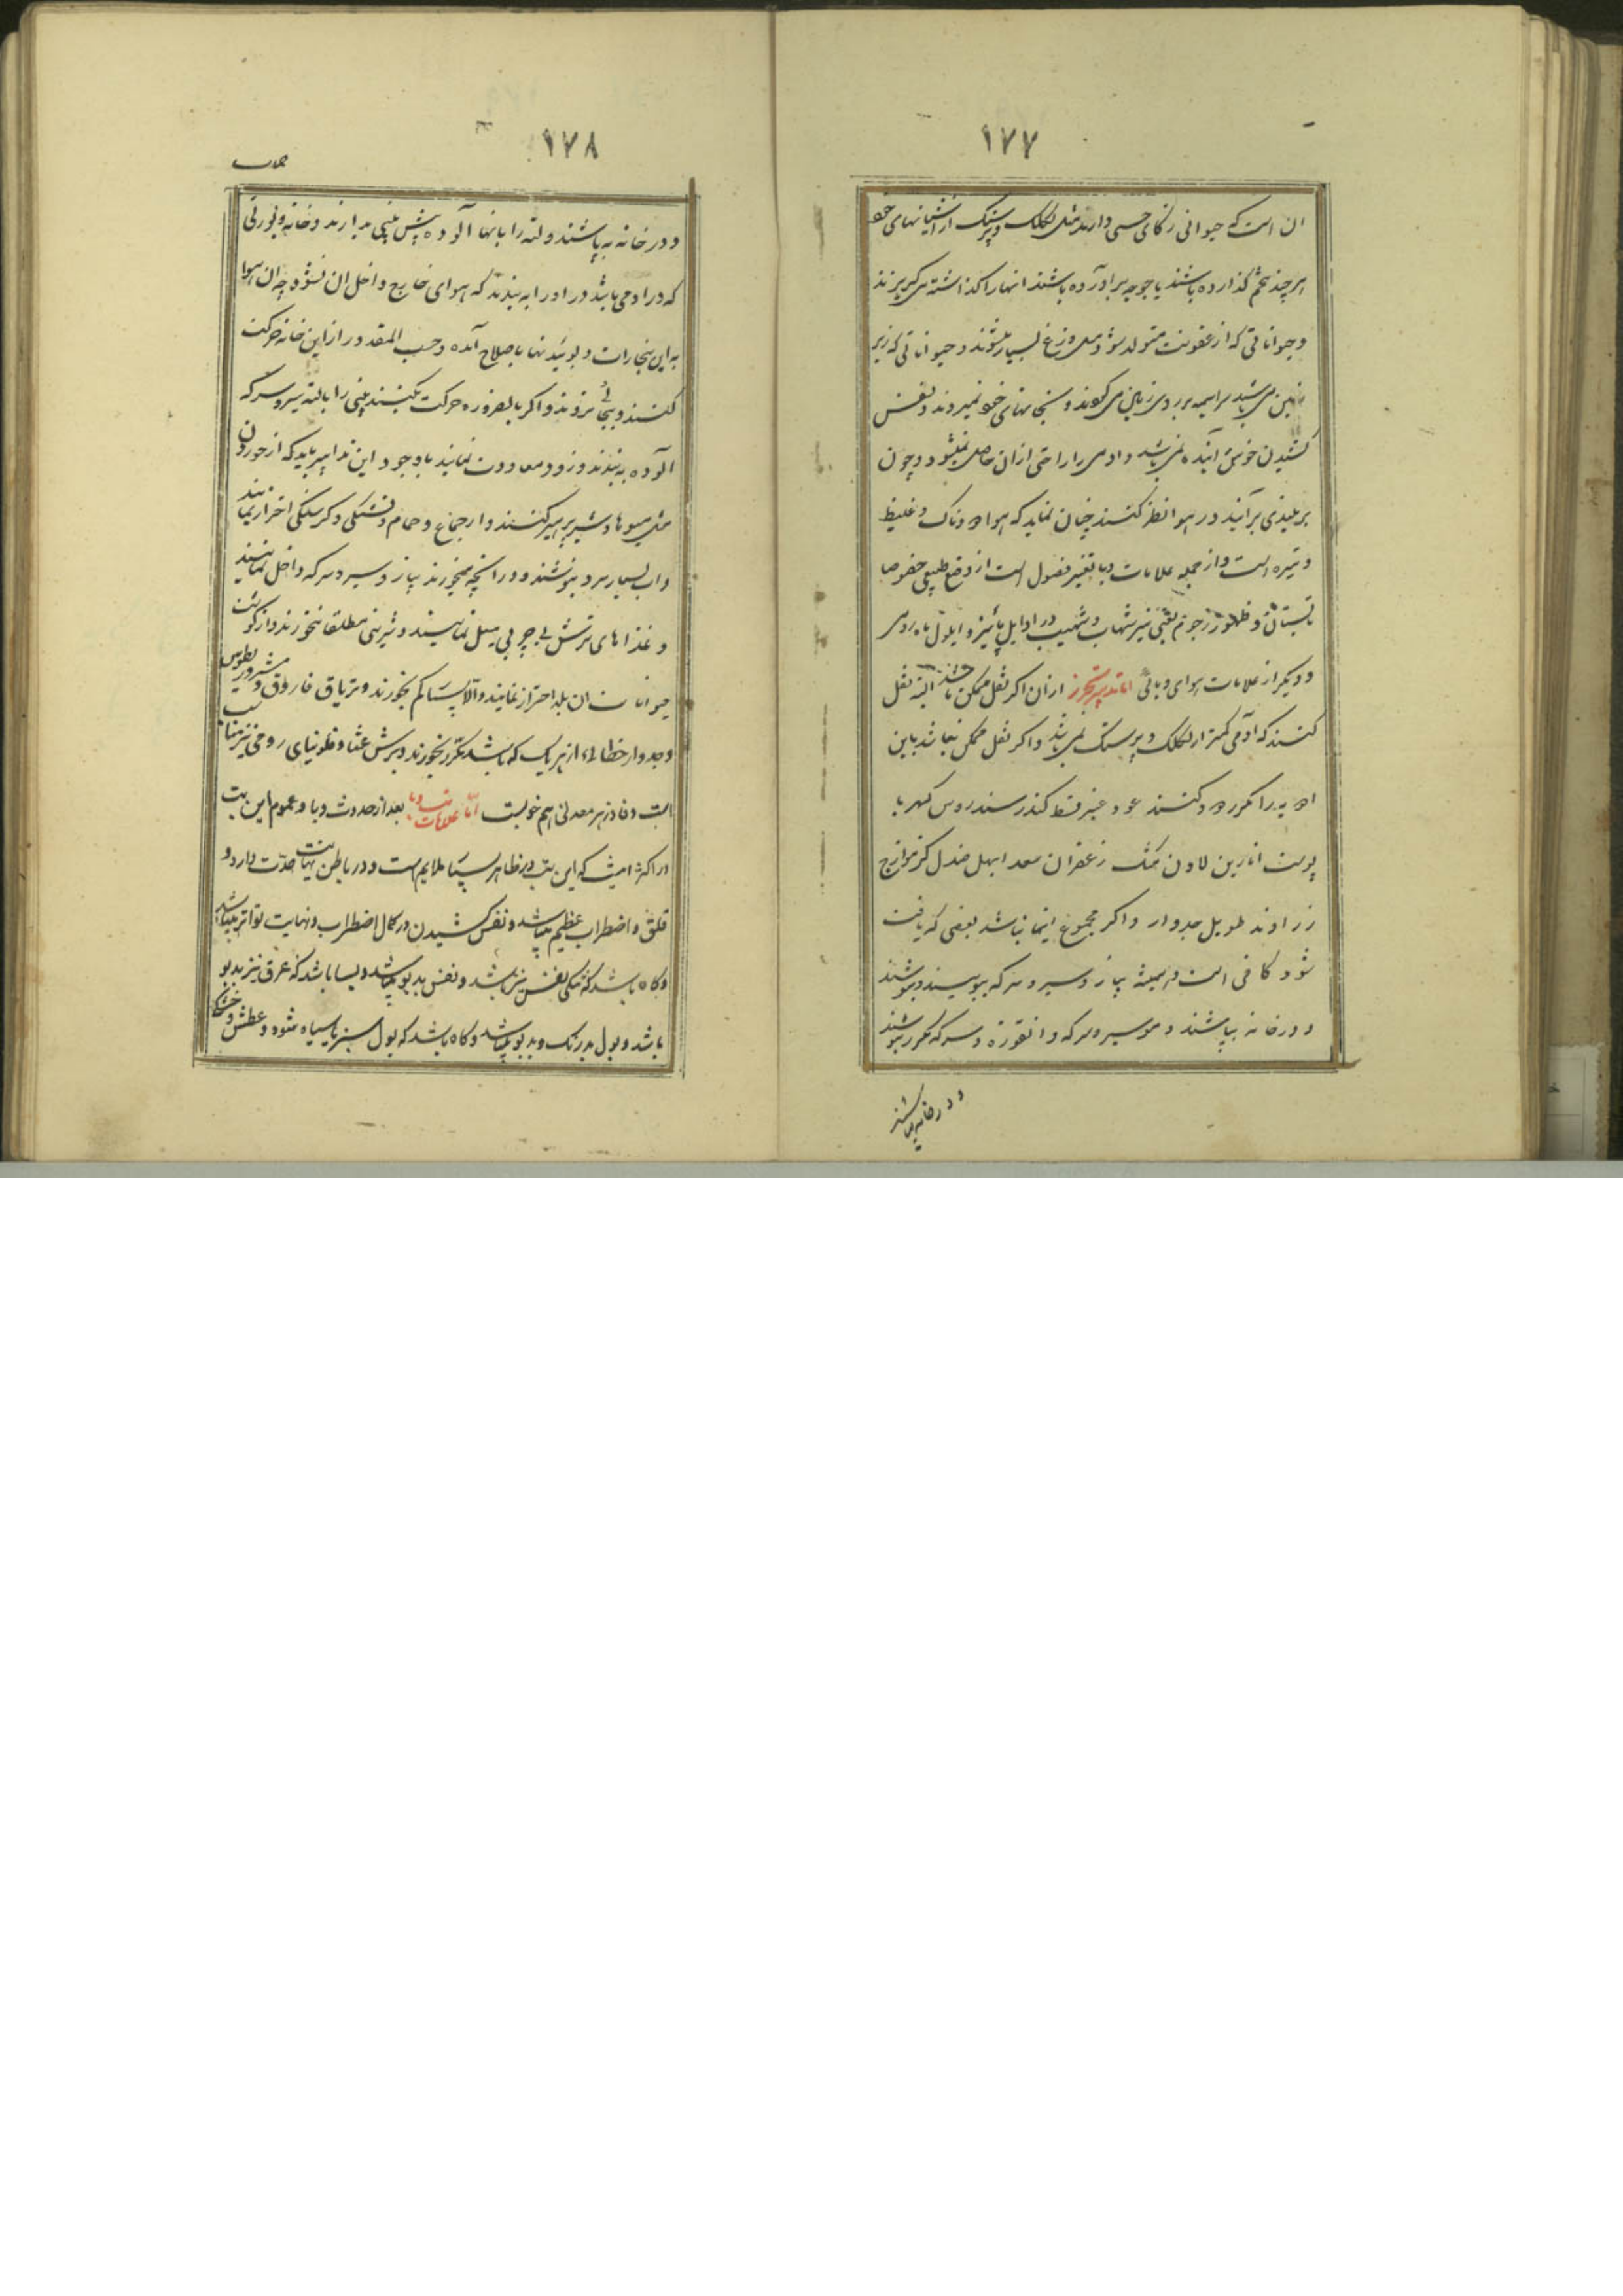 ١٧٧
ان است که حیوانی ذکای حسی دارند مثل لکلک و پرستک از اشیانهای خود
هرچند تخم گذارده باشند یا جوجه برآورده باشند انهارا گذاشته می گریزند
و حیواناتی که از عفونت متولد شود مثل وزغ بسیار میشوند و حیواناتی که زیر
زمین می باشد سراسیمه بر روی زمین می گردند و بخانهای خود نمیروند و نفس
کشیدن خوش آینده نمی باشد و ادمی را راحتی ازان حاصل نمیشود و چون
بر بلندی برآیند در هوا نظر کنند چنان نماید که هوا دودناک و غلیظ
و تیره است و از جمله علامات وبا تغییر فصول است از وضع طبیعی خصوصا
تابستان و ظهور رجوم یعنی تیر شهاب و شهیب در اوایل پائیز و ایلول ماه رومی
و دیگر از علامات هوای وبائی اما تدبیر تحرز ازان اگر نقل ممکن باشد البته نقل
کنند که آدمی کمتر از لکلک و پرستک نمی باشد و اگر نقل ممکن نباشد باین
ادویه را مکرر دود کنند عود عنبر قسط کندر سندروس کهربا
پوست انارین لادن مشک زعفران سعد ابهل صندل گزمازج
زراوند طویل جدوار و اگر مجموع اینها نباشد بعضی که یافت
شود کافی است و همیشه پیاز و سیر و سرکه ببویند و بنوشند
و درخانه بپاشند و سیر و سرکه و انقوزه و سرکه مکرر
و درخانه بپاشند
١٧٨
و درخانه بپاشند و لته را بانها آلوده پیش بینی بدارند و خانه
که در او می باشد در او را به بندند که هوای خارج داخل ان نشود چه ان هوا
به این بخارات و بوئیدنها باصلاح آمده و حسب المقدور ازاین خانه حرکت
کنند و بجائی نروند و اگر بالضروره حرکت بکنند بینی را بالته سیر و سرکه
الوده به بندند و زود معاودت نمایند با وجود این تدابیر باید که از خوردن
مثل میوها و شیر پرهیز کنند و از جماع و حمام و تشنگی و گرسنگی احتراز نمایند
و اب بسیار سرد بنوشند و در انچه میخورند پیاز و سیر و سرکه داخل نمایند
و غذاهای ترش بی چربی میل نمایند و شیرینی مطلقا نخورند و از گوشت
حیوانات ان بلد احتراز نمایند والا بسیار کم بخورند و تریاق فاروق و مثرودیطوس
و جدوار خطائی از هریک که باشد مکرر بخورند و برش عشا و فلونیای رومی نیز مناسب
است و فادزهر معدنی هم خوبست اما علامات تب وبا بعد از حدوث وبا و عموم این تب
در اکثر امیست که این تب در ظاهر بسیار ملایم است و در باطن نهایت حدت دارد و
قلق و اضطراب عظیم میباشد و نفس کشیدن در کمال اضطراب و نهایت تواتر میباشد
و گاه باشد که تنگی نفس نیز باشد و نفس بدبو میباشد و بسا باشد که عرق نیز بدبو
باشد و بول بدرنگ و بدبو میباشد و گاه باشد که بول سبز یا سیاه شود و عطش و خشکی